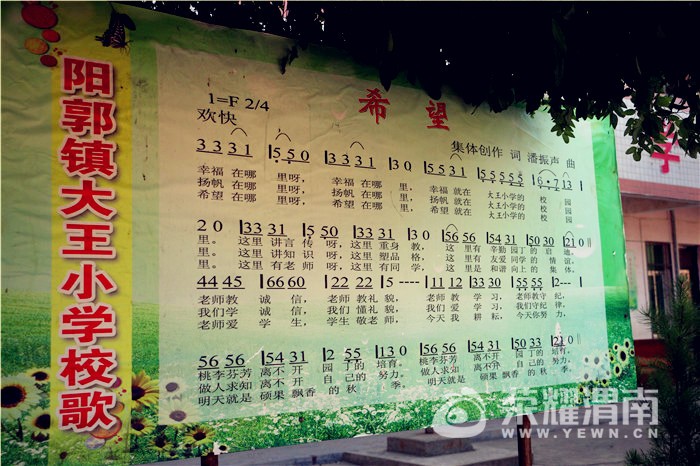 阳郭镇大王小学校歌
希望
1=F 2/4
欢快
集体创作 词 潘振声 曲
3 3 3 1 | 5 5 0 | 3 3 3 1 | 3 0 | 5 5 3 1 | 5 5 5 5 5 | 6 · 7 | 1 3 |
幸福 在哪 里呀, 幸福 在哪 里, 幸福 就在 大王小学的 校 园
扬帆 在哪 里呀, 扬帆 在哪 里, 扬帆 就在 大王小学的 校 园
希望 在哪 里呀, 希望 在哪 里, 希望 就在 大王小学的 校 园
2 0 | 33 31 | 5 50 | 33 31 | 3 0 | 56 56 | 54 31 | 50 30 | 21 0 ‖
里。 这里 讲言 传 呀, 这里 重身 教, 这里 有 辛勤 园丁 的 启 迪,
里。 这里 讲知 识 呀, 这里 塑品 格, 这里 有 友爱 同学 的 情 谊,
里。 这里 有老 师 呀, 这里 有同 学, 这里 是 和谐 向上 的 集 体。
44 45 | 16 60 | 22 22 | 5 - | - - | 11 12 | 33 30 | 55 55 | 2 - - |
老师教 诚 信, 老师 教礼 貌, 老师 教 学 习, 老师教守 纪,
我们学 诚 信, 我们 懂礼 貌, 我们 爱 学 习, 我们守纪 律,
老师爱 学 生, 学生 敬老 师, 今天 我 耕 耘, 今天你努 力,
56 56 | 54 31 | 2 55 | 13 0 | 56 56 | 54 31 | 50 33 | 21 0 ‖
桃李芬芳 离不 开 园 丁的 培育。 桃李芬芳 离不开 园丁的 培育。
做人求知 离不 开 自 己的 努力。 做人求知 离不开 自己的 努力。
明天就是 硕果 飘香 的 秋 季。 明天就是 硕果 飘香 的 秋 季。
学
荣耀渭南
WWW.YEWN.CN